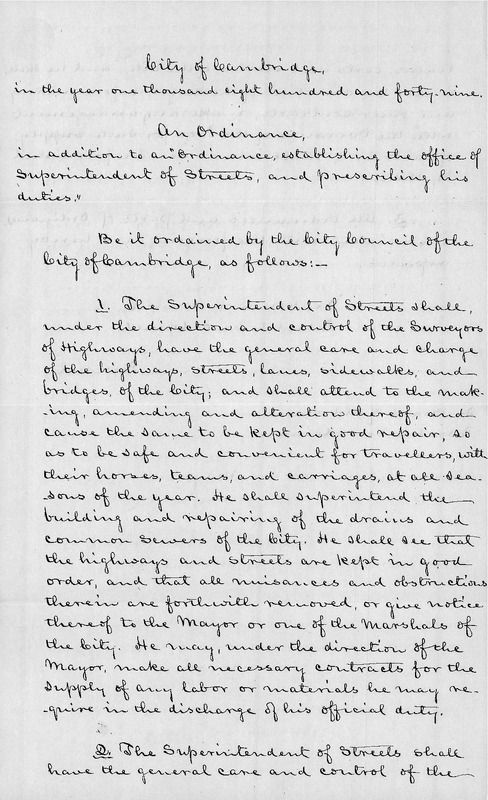 City of Cambridge,
in the year one thousand eight hundred and forty-nine.
An Ordinance,
in addition to an "Ordinance, establishing the office of
Superintendent of Streets, and prescribing his
duties."
Be it ordained by the City Council of the
City of Cambridge, as follows:—
1. The Superintendent of Streets shall,
under the direction and control of the Surveyors
of Highways, have the general care and charge
of the highways, streets, lanes, sidewalks, and
bridges, of the City; and shall attend to the mak-
-ing, amending and alteration thereof, and
cause the same to be kept in good repair, so
as to be safe and convenient for travellers, with
their horses, teams, and carriages, at all sea-
sons of the year. He shall superintend the
building and repairing of the drains and
common sewers of the City. He shall see that
the highways and streets are kept in good
order, and that all nuisances and obstructions
therein are forthwith removed, or give notice
thereof to the Mayor or one of the Marshals of
the City. He may, under the direction of the
Mayor, make all necessary contracts for the
supply of any labor or materials he may re-
-quire in the discharge of his official duty.
2. The Superintendent of Streets shall
have the general care and control of the